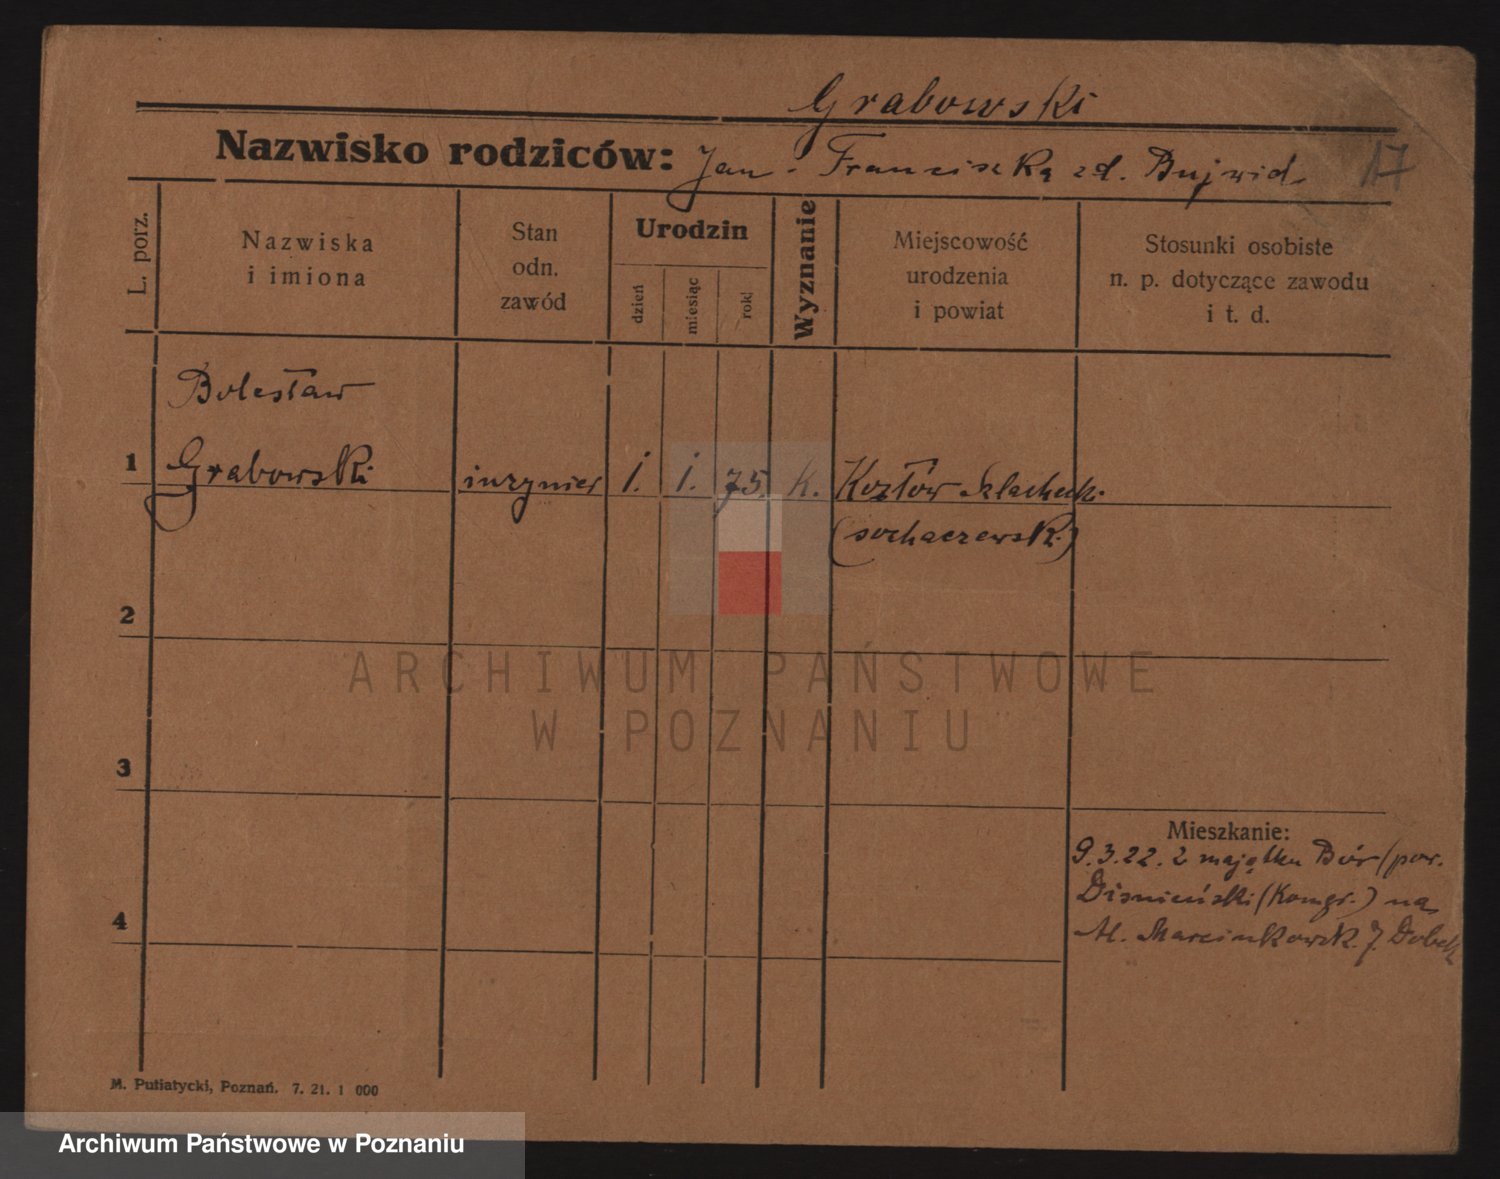 Grabowski
Nazwisko rodziców: Jan - Franciszka zd. Bujwid 17
L. porz.
Nazwiska i imiona
Stan odn. zawód
Urodzin
dzień miesiąc rok
Wyznanie
Miejscowość urodzenia i powiat
Stosunki osobiste n. p. dotyczące zawodu i t. d.
Bolesław
1 Grabowski inżynier 1. 1. 75. k. Kozłów Szlacheck.
(sochaczewski)
2
ARCHIWUM PAŃSTWOWE
W POZNANIU
3
Mieszkanie:
9.3.22. z majątku Bór (pow.
Disnieński (Kongr.) na
4
Al. Marcinkowsk. 7.
M. Putiatycki, Poznań. 7. 21. 1 000
Archiwum Państwowe w Poznaniu